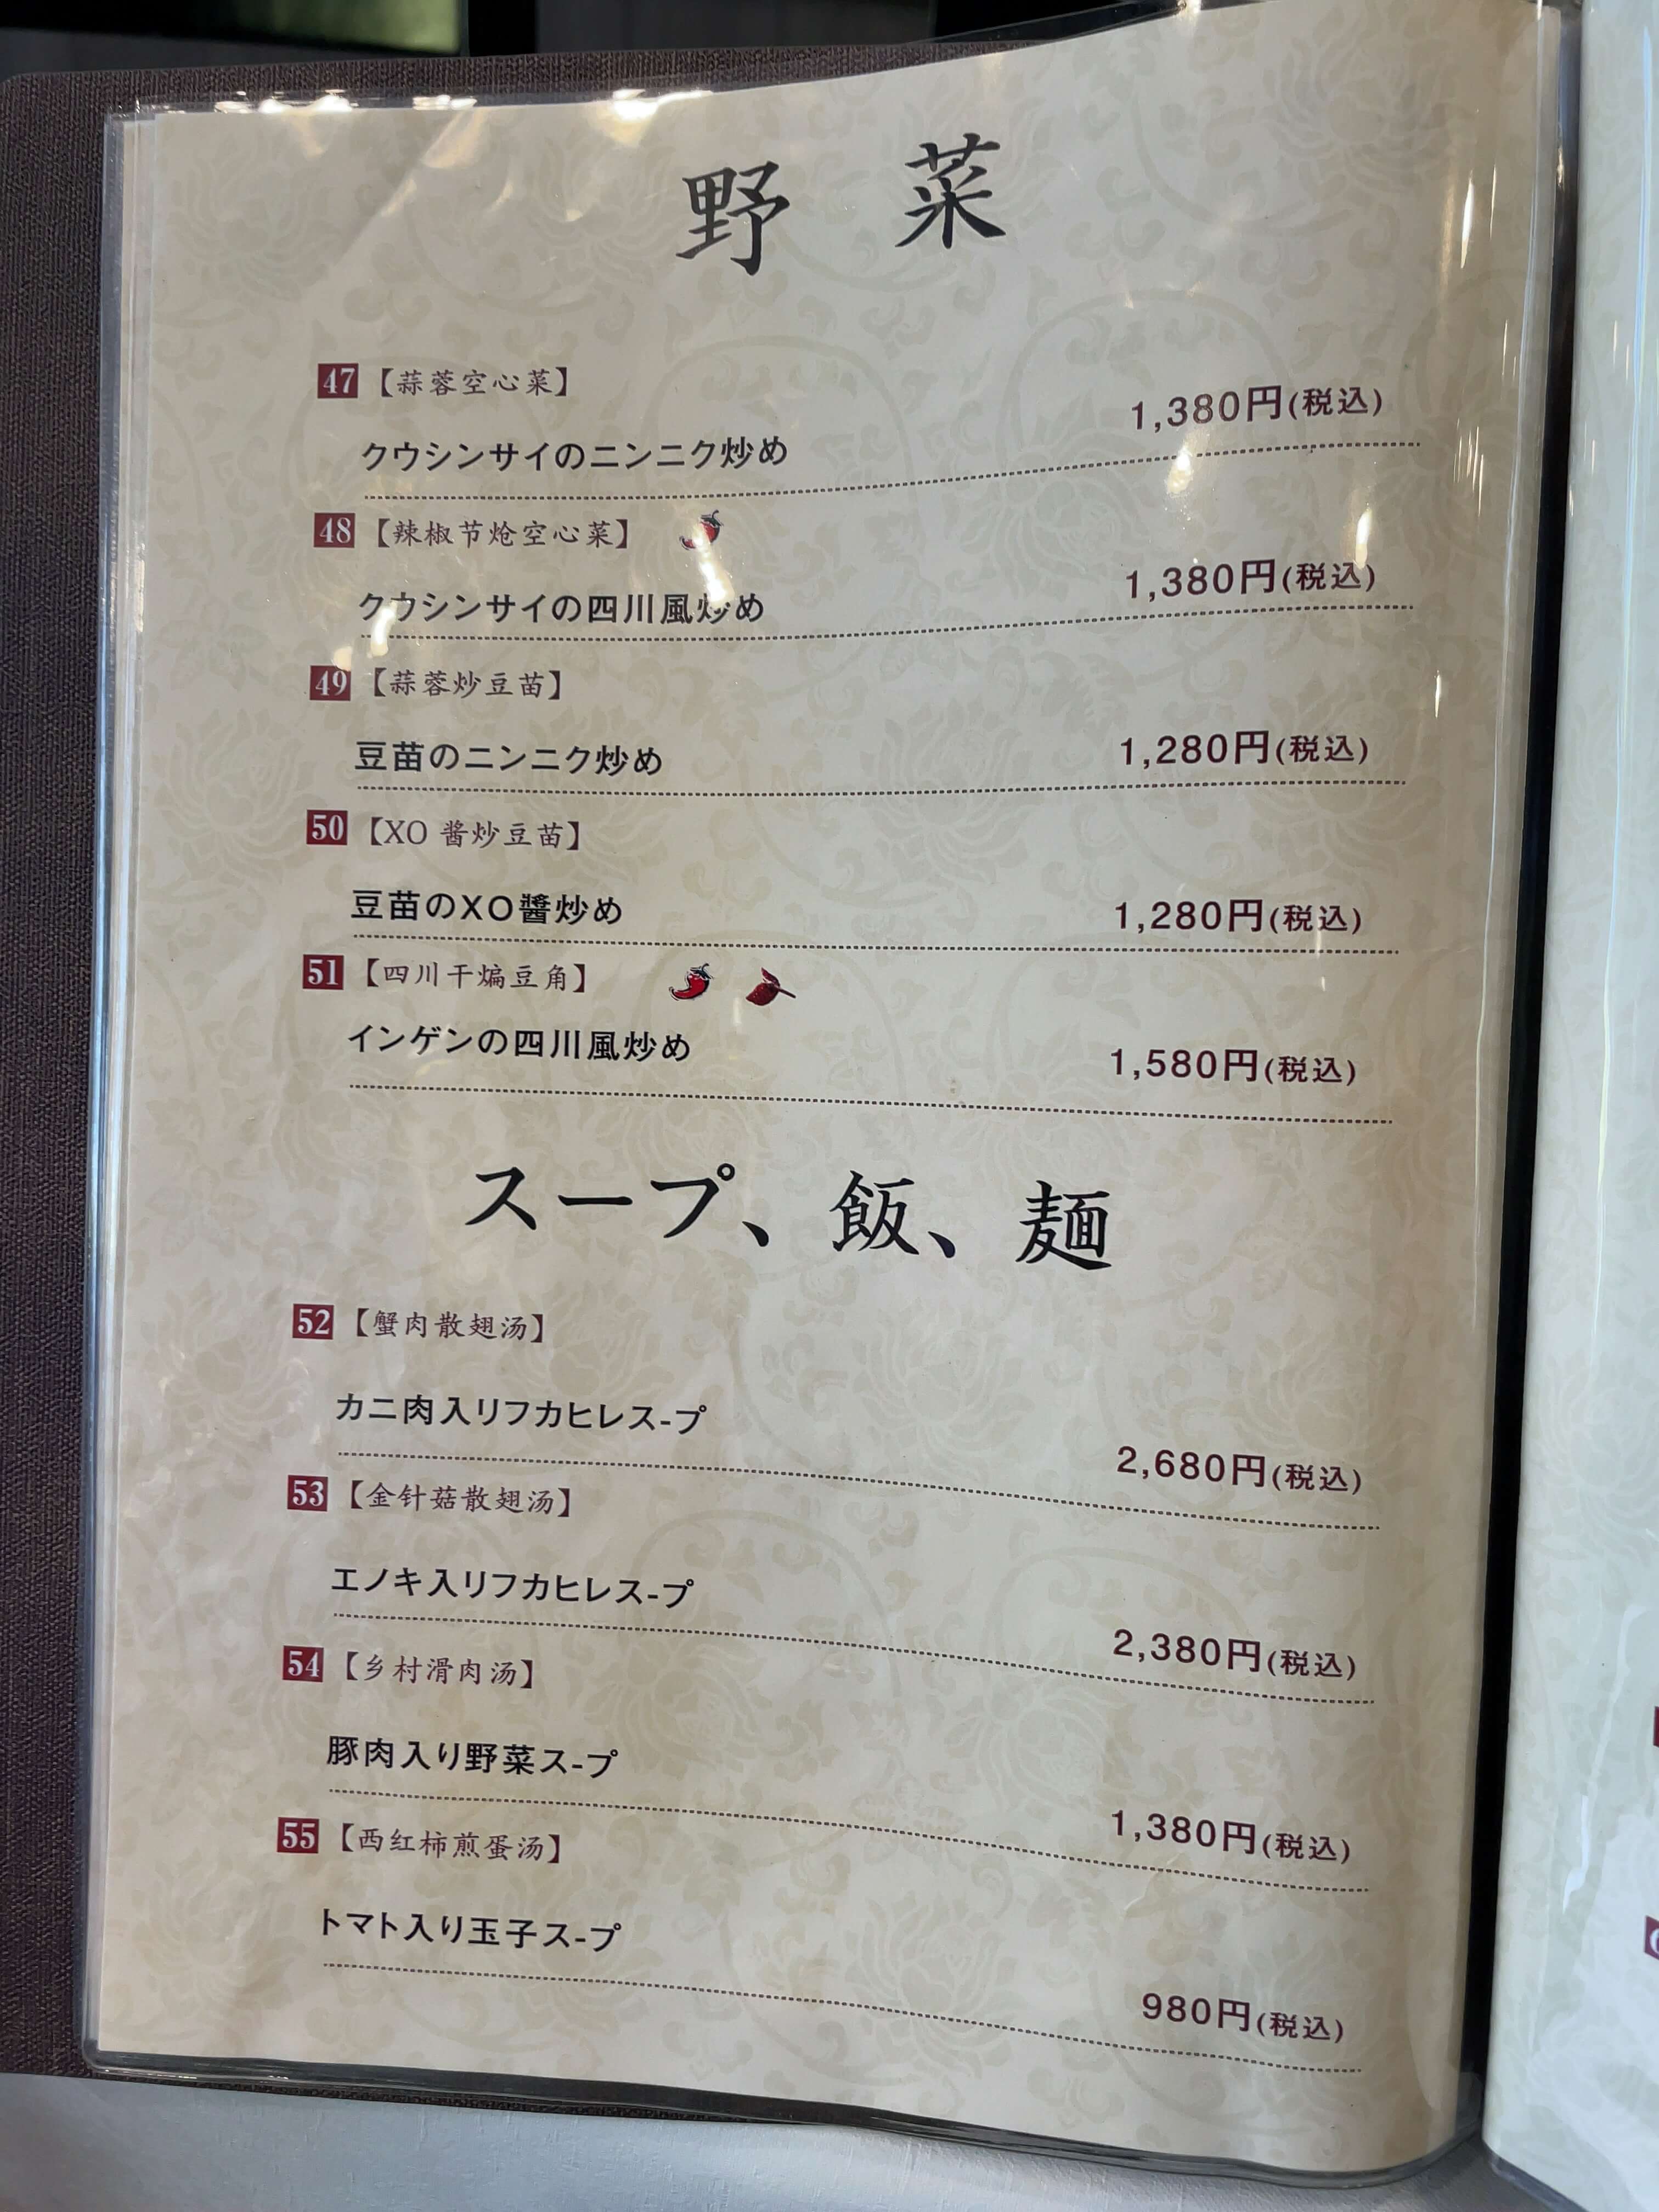 野 菜
47【蒜蓉空心菜】
クウシンサイのニンニク炒め 1,380円(税込)
48【辣椒节炝空心菜】
クウシンサイの四川風炒め 1,380円(税込)
49【蒜蓉炒豆苗】
豆苗のニンニク炒め 1,280円(税込)
50【XO 酱炒豆苗】
豆苗のXO醬炒め 1,280円(税込)
51【四川干煸豆角】
インゲンの四川風炒め 1,580円(税込)
スープ、飯、麺
52【蟹肉散翅汤】
カニ肉入リフカヒレス-プ 2,680円(税込)
53【金针菇散翅汤】
エノキ入リフカヒレス-プ 2,380円(税込)
54【乡村滑肉汤】
豚肉入り野菜ス-プ 1,380円(税込)
55【西红柿煎蛋汤】
トマト入り玉子ス-プ 980円(税込)